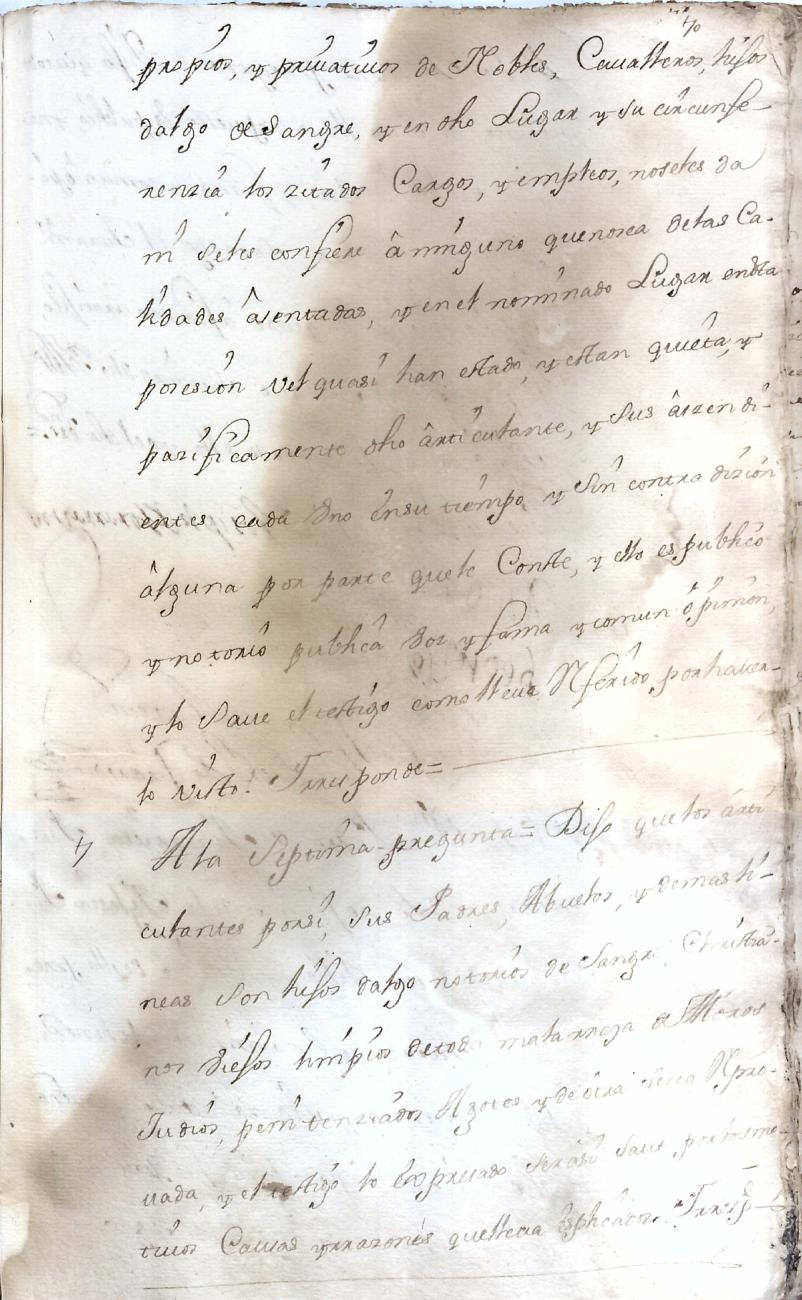 70
propios, y privativos de Nobles, Cavalleros, hijos
dalgo de Sangre, y en dho Lugar y su circunfe-
renzia los zitados Cargos, y empleos, noseles da
ni seles confiere â ninguno quenosea delas Ca-
lidades âsentadas, y en el nominado Lugar endta
posesion vel quasi han estado, y estan quieta, y
pazificamente dho ârticulante, y sus âszendi-
entes cada Vno ênsu tiempo, y Sin contradizion
âlguna por parte quele Conste, y ello es publico
y notorio publica Voz y fama y comun ôpinion,
y lo Save el testigo como lleva Rferido, por haver-
lo visto. Yrresponde=
7 Ala Septima pregunta= Dijo quelos ârti
culantes porsi, sus Padres, Abuelos, y demas li-
neas son hijos dalgo notorios de Sangre, Christia-
nos Viejos limpios detoda mala rraza de Moros
Judios, penitenziados Agotes y de otra secta Rpro-
vada, y el testigo lo êxpresado ser asi Save, por losmo-
tivos Causas yrrazones quelleva êsplicados. Yrresp